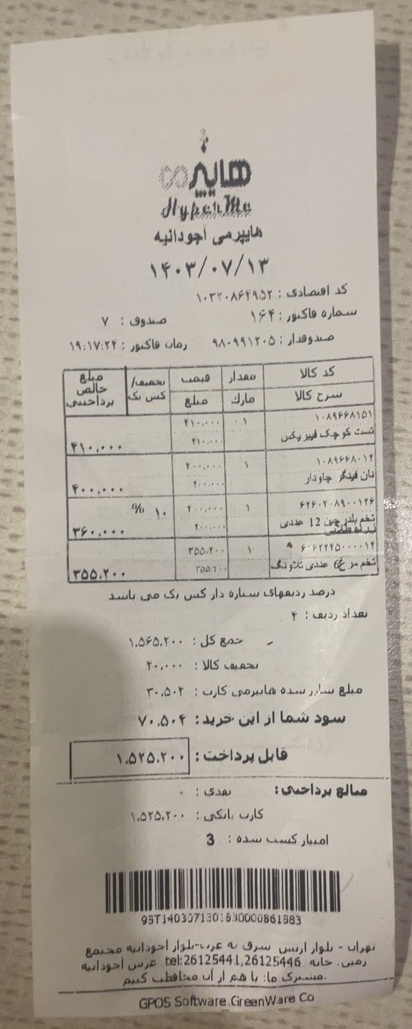 هایپر
HyperMe
هایپرمی آجودانیه
۱۴۰۳/۰۷/۱۳
کد اقتصادی : ۱۰۳۲۰۸۶۴۹۵۲
شماره فاکتور : ۱۶۴ صندوق : ۷
صندوقدار : ۹۸۰۹۹۱۲۰۵ زمان فاکتور : ۱۹:۱۷:۲۴
کد کالا مقدار قیمت تخفیف/ مبلغ خالص پرداختی
شرح کالا مارک مبلغ کس بک
۱۰۸۹۶۶۸۱۵۱ ۱ ۴۱۰،۰۰۰
تست کوچک فیبر یکس ۴۱۰،۰۰۰ ۴۱۰،۰۰۰
۱۰۸۹۶۶۸۰۱۲ ۱ ۴۰۰،۰۰۰
نان فینگر جاودار ۴۰۰،۰۰۰ ۴۰۰،۰۰۰
۶۲۶۰۲۰۸۹۰۰۱۲۶ ۱ ۴۰۰،۰۰۰ ۱۰ %
12 عددی ۴۰۰،۰۰۰ ۳۶۰،۰۰۰
۱ ۳۵۵،۲۰۰
تخم مرغ 6 عددی تلاونگ ۳۵۵،۲۰۰ ۳۵۵،۲۰۰
درصد ردیفهای ستاره دار کس بک می باشد
تعداد ردیف : ۴
جمع کل : ۱،۵۶۵،۲۰۰
تخفیف کالا : ۴۰،۰۰۰
مبلغ شارژ شده هایپرمی کارت : ۳۰،۵۰۴
سود شما از این خرید : ۷۰،۵۰۴
قابل پرداخت : ۱،۵۲۵،۲۰۰
مبالغ پرداختی : نقدی : ۰
کارت بانکی : ۱،۵۲۵،۲۰۰
امتیاز کسب شده : 3
98T1403071301630000861883
تهران - بلوار ارتش شرق به غرب-بلوار آجودانیه مجتمع
زمین. خانه tel:26125441,26125446 عرش آجودانیه
مشتری ما: با هم از آن محافظت کنیم.
GPOS Software.GreenWare Co